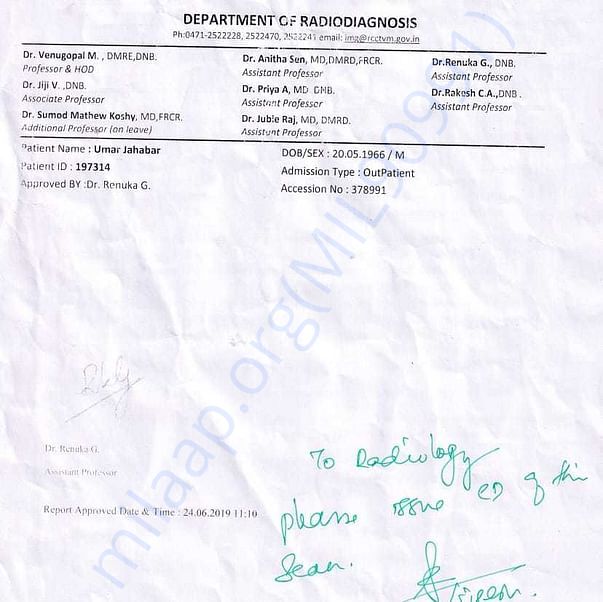 DEPARTMENT OF RADIODIAGNOSIS
Ph:0471-2522228, 2522470, 2522241 email: img@rcctvm.gov.in
Dr. Venugopal M. , DMRE,DNB.
Professor & HOD
Dr. Jiji V. ,DNB.
Associate Professor
Dr. Sumod Mathew Koshy, MD,FRCR.
Additional Professor (on leave)
Dr. Anitha Sen, MD,DMRD,FRCR.
Assistant Professor
Dr. Priya A, MD DNB.
Assistant Professor
Dr. Jubie Raj, MD, DMRD.
Assistant Professor
Dr.Renuka G., DNB.
Assistant Professor
Dr.Rakesh C.A.,DNB .
Assistant Professor
Patient Name : Umar Jahabar
Patient ID : 197314
Approved BY :Dr. Renuka G.
DOB/SEX : 20.05.1966 / M
Admission Type : OutPatient
Accession No : 378991
Dr. Renuka G.
Assistant Professor
Report Approved Date & Time : 24.06.2019 11:10
To Radiology
please issue CD of this
Scan.
milaap.org(MIL)